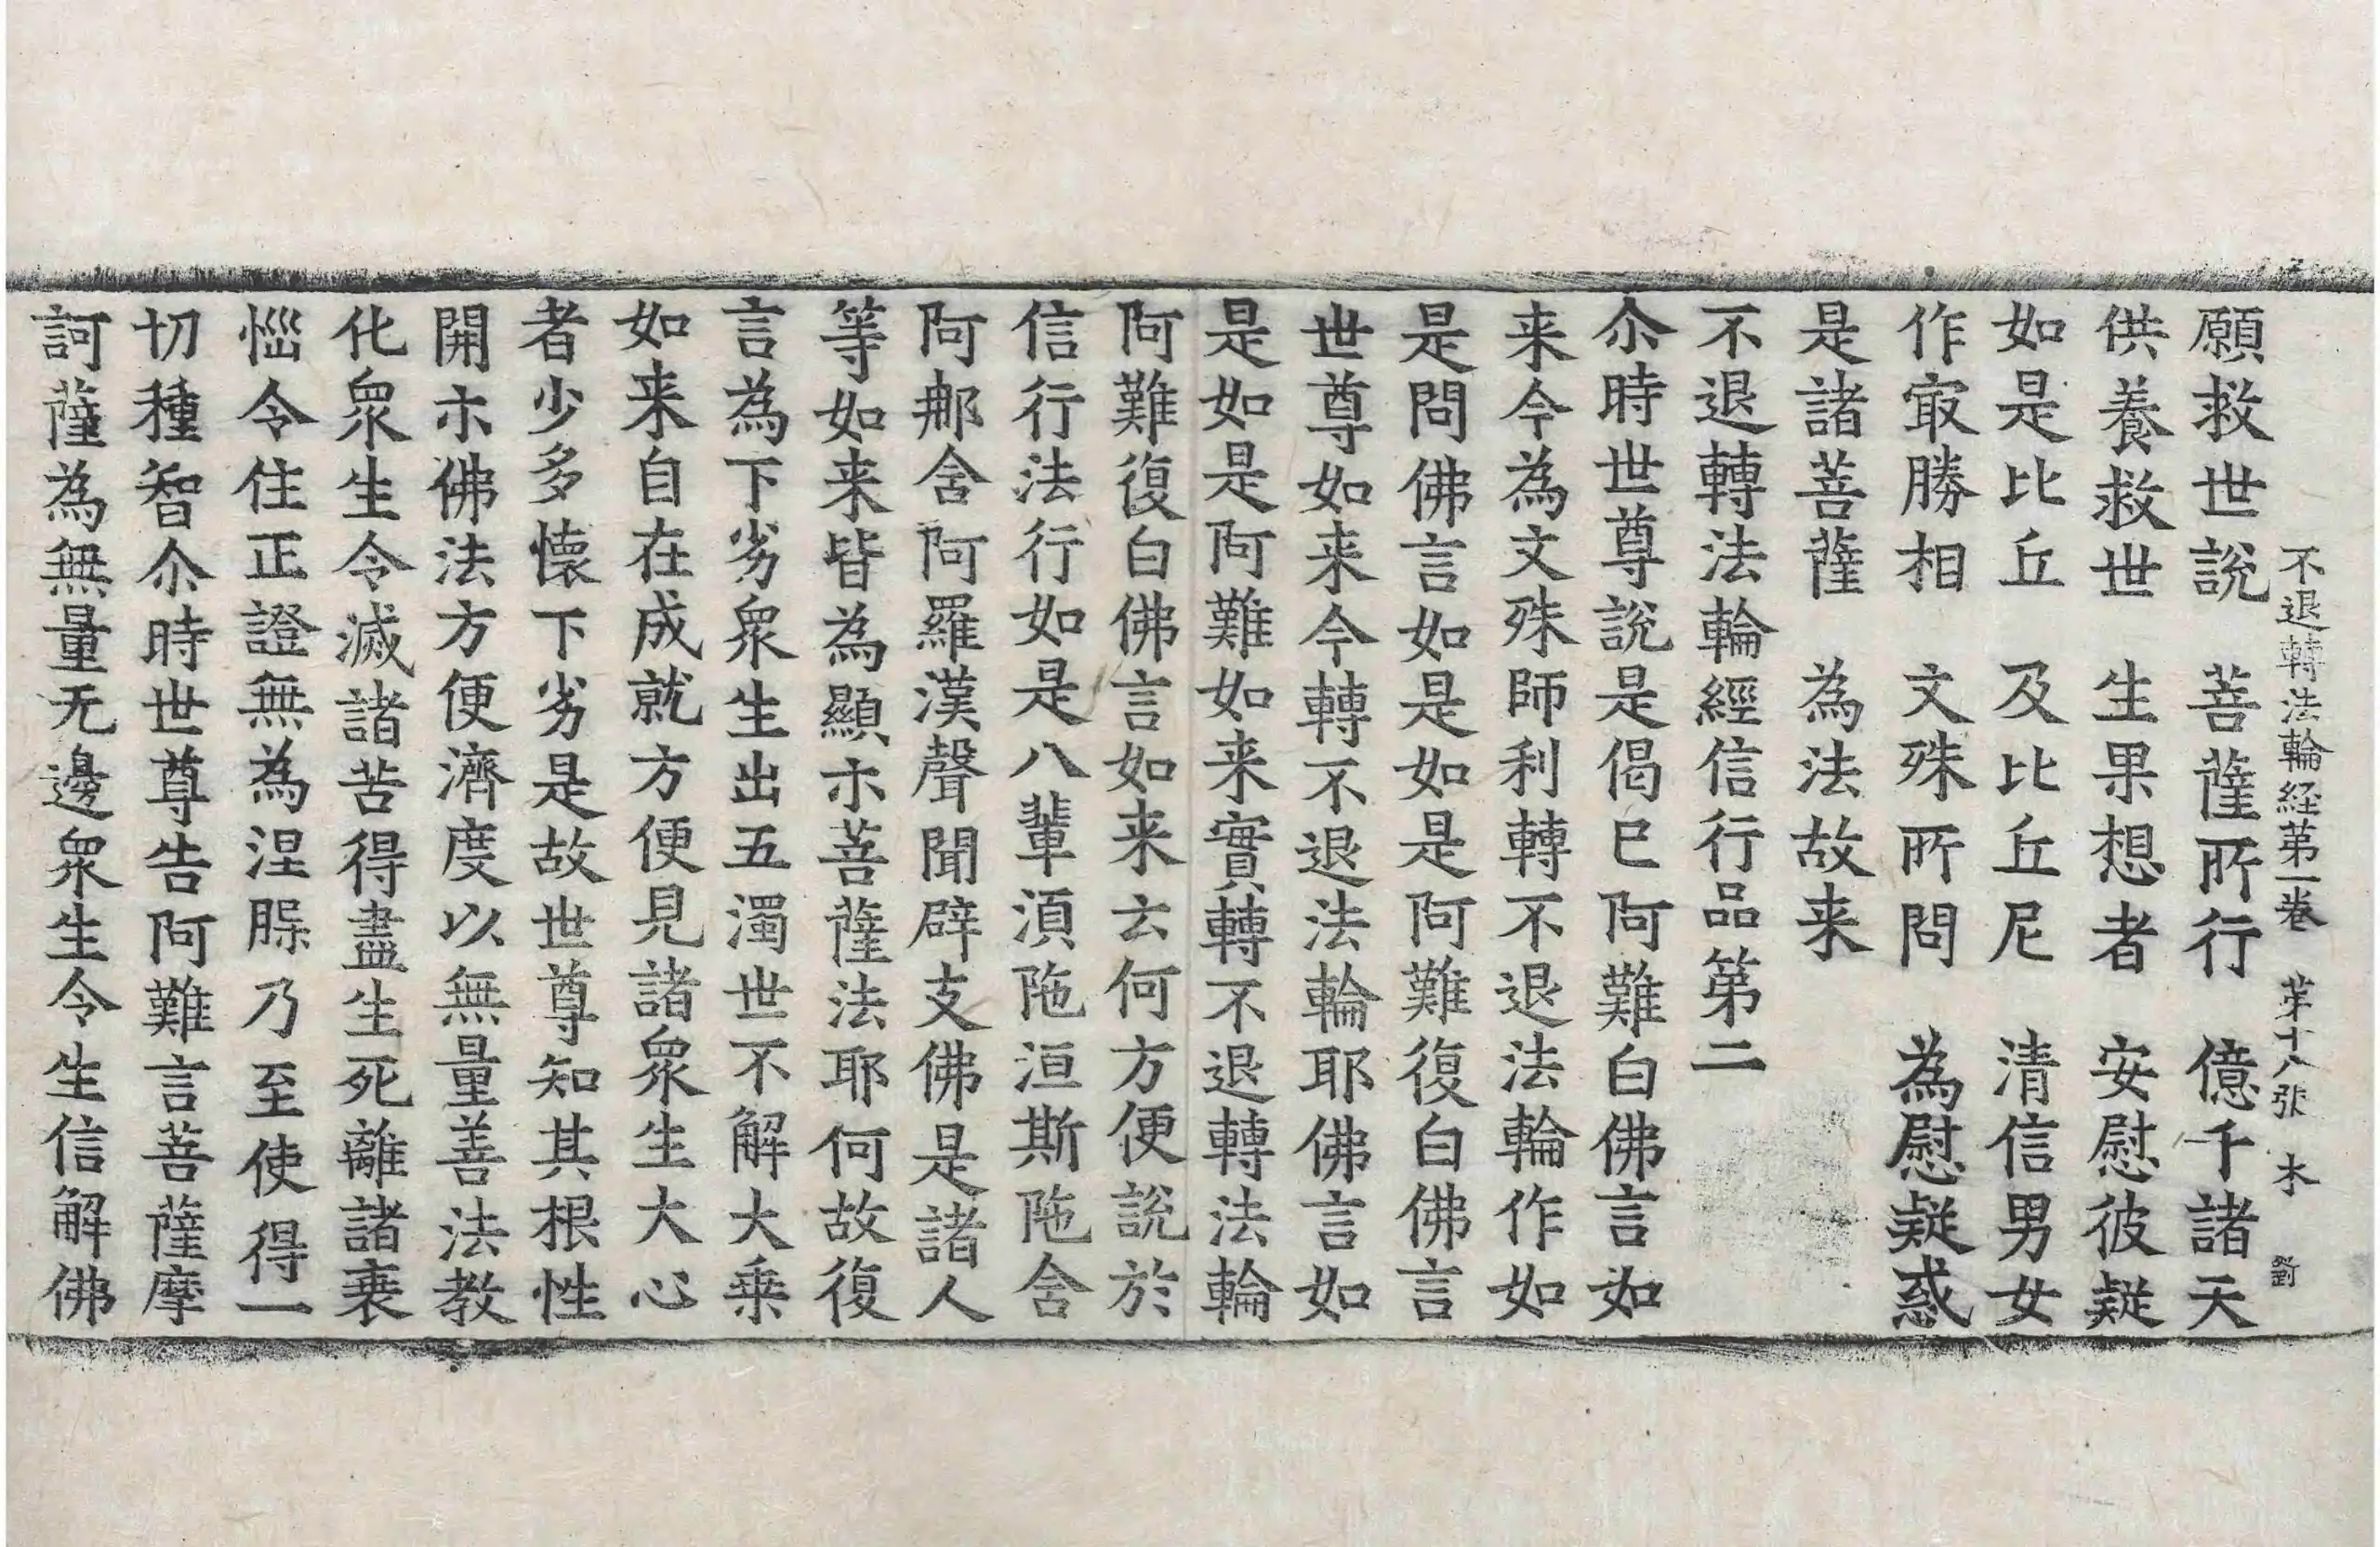 不退轉法輪経第一卷 第十八张 木 劉
願救世說 菩薩所行 億千諸天
供養救世 生果想者 安慰彼疑
如是比丘 及比丘尼 清信男女
作㝡勝相 文殊所問 為慰疑惑
是諸菩薩 為法故来
不退轉法輪經信行品第二
尒時世尊說是偈已阿難白佛言如
来今為文殊師利轉不退法輪作如
是問佛言如是如是阿難復白佛言
世尊如来今轉不退法輪耶佛言如
是如是阿難如来實轉不退轉法輪
阿難復白佛言如来云何方便說於
信行法行如是八輩湏陁洹斯陁舍
阿那舍阿羅漢聲聞辟支佛是諸人
等如来皆為顯示菩薩法耶何故復
言為下劣衆生出五濁世不解大乗
如来自在成就方便見諸衆生大心
者少多懷下劣是故世尊知其根性
開示佛法方便濟度以無量善法教
化衆生令滅諸苦得盡生死離諸衰
惱令住正證無為涅槃乃至使得一
切種智尒時世尊告阿難言菩薩摩
訶薩為無量无邊衆生令生信解佛